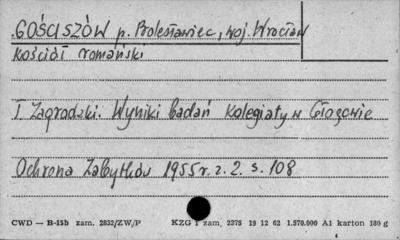 GOŚCISZÓW p. Bolesławiec, woj. Wrocław
Kościół romański
T. Zagrodzki. Wyniki badań Kolegiaty w Głogowie
Ochrona Zabytków 1955 r. z. 2. s. 108
CWD — B-15b zam. 2832/ZW/P KZG 1 zam. 2375 19 12 62 1.570.000 A1 karton 180 g